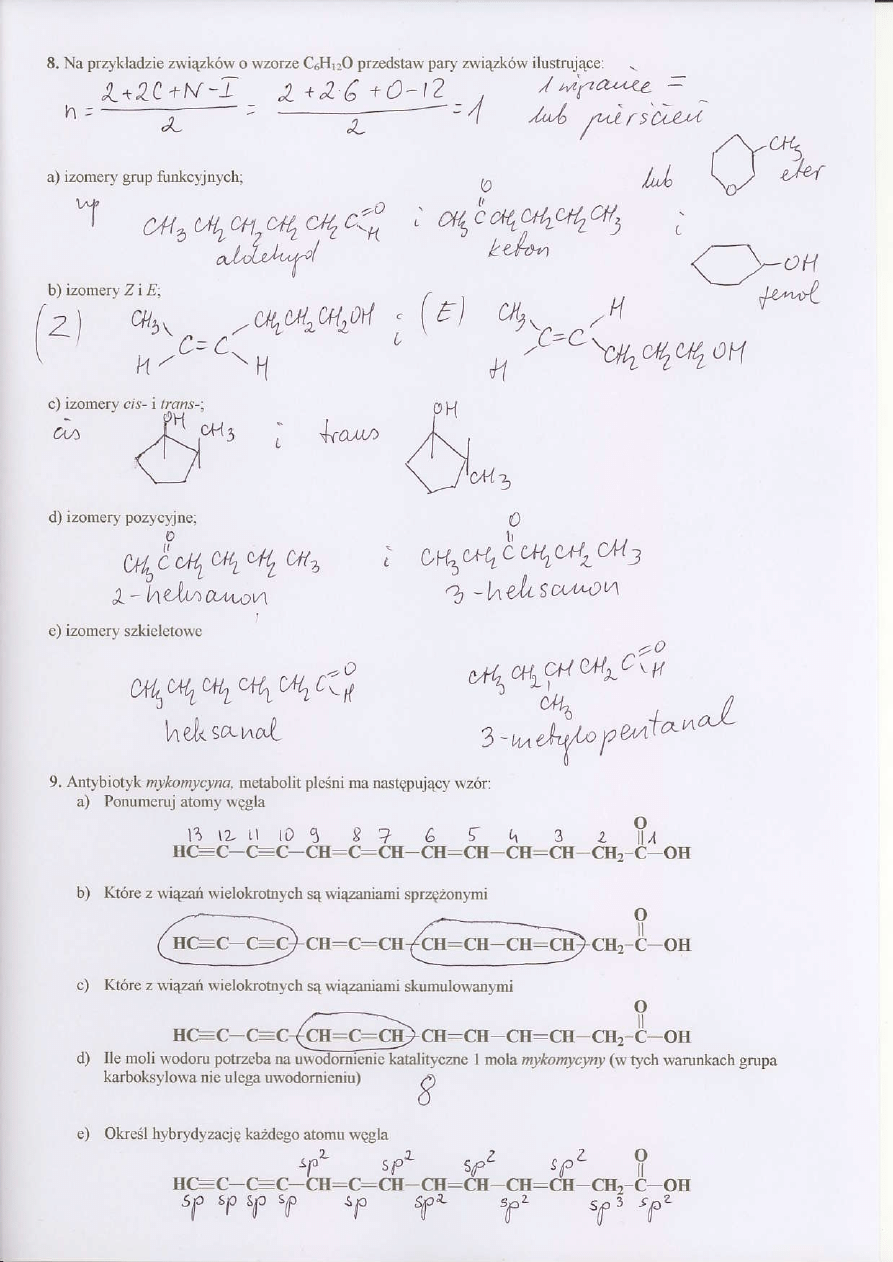 8. Na przykładzie związków o wzorze C₆H₁₂O przedstaw pary związków ilustrujące:
n = (2+2C+N-I)/2 = (2+2·6+0-12)/2 = 1    1 wiązanie =
lub pierścień
a) izomery grup funkcyjnych;
lub CH₃ O eter
np CH₃CH₂CH₂CH₂CH₂C=O H i CH₃CCH₂CH₂CH₂CH₃ O i
aldehyd keton
OH fenol
b) izomery Z i E;
(Z) CH₃ H C=C CH₂CH₂CH₂OH H i (E) CH₃ H C=C H CH₂CH₂CH₂OH
c) izomery cis- i trans-;
cis OH CH₃ i trans OH CH₃
d) izomery pozycyjne;
O O
CH₃CCH₂CH₂CH₂CH₃ i CH₃CH₂CCH₂CH₂CH₃
2-heksanon 3-heksanon
e) izomery szkieletowe
CH₃CH₂CH₂CH₂CH₂C=O H CH₃CH₂CHCH₂C=O H
CH₃
heksanal 3-metylopentanal
9. Antybiotyk mykomycyna, metabolit pleśni ma następujący wzór:
a) Ponumeruj atomy węgla
O
13 12 11 10 9 8 7 6 5 4 3 2 1
HC≡C−C≡C−CH=C=CH−CH=CH−CH=CH−CH₂−C−OH
b) Które z wiązań wielokrotnych są wiązaniami sprzężonymi
O
HC≡C−C≡C−CH=C=CH−CH=CH−CH=CH−CH₂−C−OH
c) Które z wiązań wielokrotnych są wiązaniami skumulowanymi
O
HC≡C−C≡C−CH=C=CH−CH=CH−CH=CH−CH₂−C−OH
d) Ile moli wodoru potrzeba na uwodornienie katalityczne 1 mola mykomycyny (w tych warunkach grupa
karboksylowa nie ulega uwodornieniu)
8
e) Określ hybrydyzację każdego atomu węgla
sp² sp² sp² sp² O
HC≡C−C≡C−CH=C=CH−CH=CH−CH=CH−CH₂−C−OH
sp sp sp sp sp sp² sp² sp³ sp²